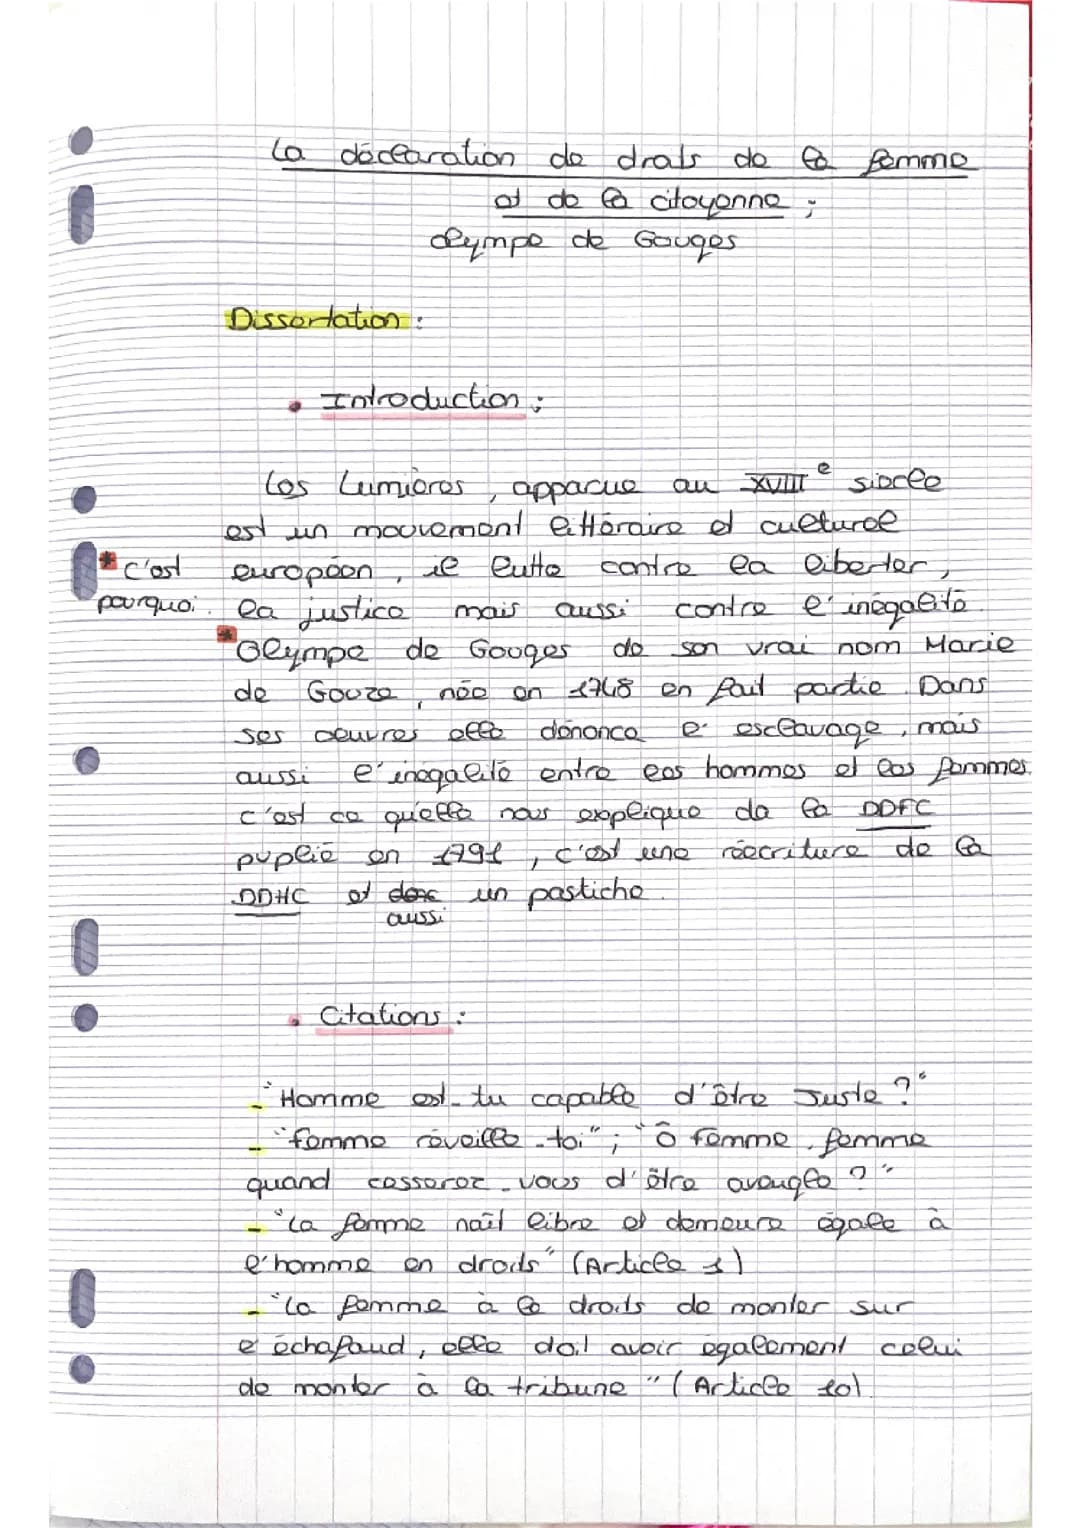 La déclaration de droits de la femme
et de la citoyenne ;
Olympe de Gouges
Dissertation :
• Introduction :
Les Lumières, apparue au XVIIIe siècle
est un mouvement littéraire et culturel
* c'est pourquoi
européen, il lutte contre la liberter,
la justice mais aussi contre l'inégalité.
* Olympe de Gouges de son vrai nom Marie
de Gouze, née en 1748 en fait partie. Dans
ses oeuvres elle dénonca l'esclavage, mais
aussi l'inégalité entre les hommes et les femmes.
c'est ce qu'elle nous explique da la DDFC
puplié en 1791, c'est une réécriture de la
DDHC et donc un pastiche.
aussi
• Citations :
- "Homme est-tu capable d'être Juste ?"
- "femme réveille-toi" ; "Ô femme, femme
quand cesserez-vous d'être aveugle ?"
- "La femme naît libre et demeure égale à
l'homme en droits" (Article 1)
- "La femme à le droits de monter sur
l'échafaud, elle doit avoir également celui
de monter à la tribune" (Article 10).